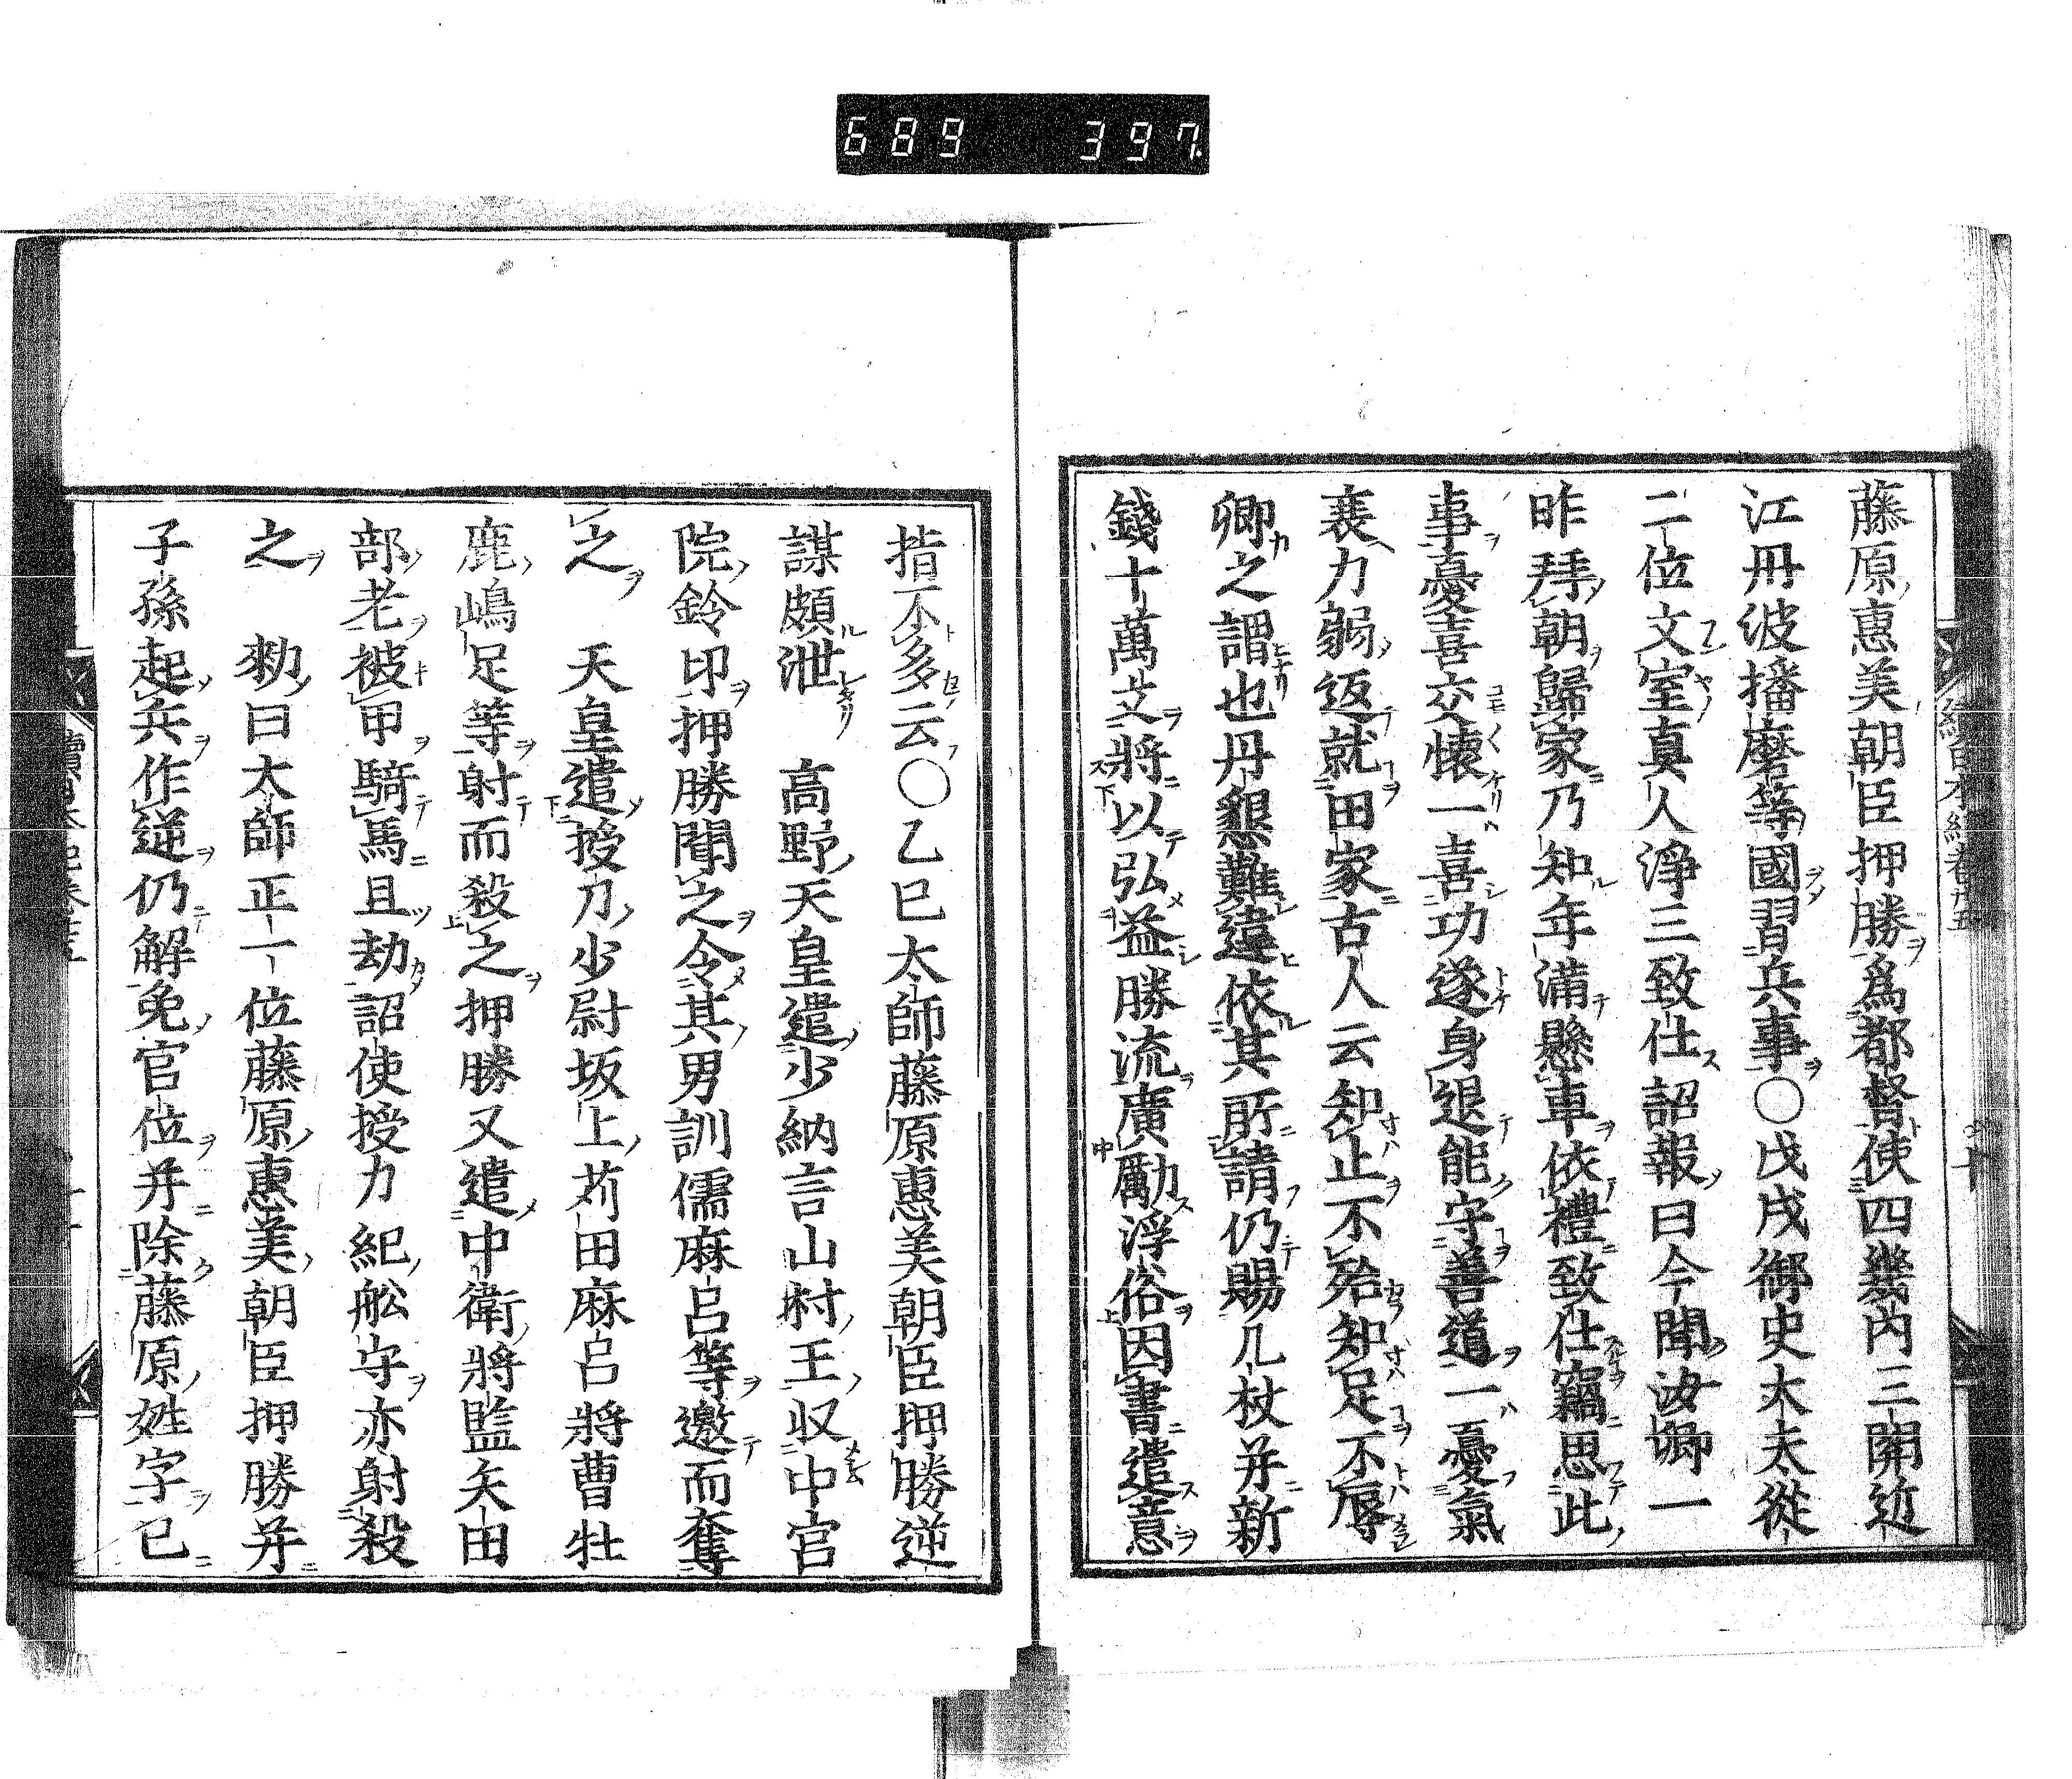 689 397.
藤原惠美朝臣押勝爲都督使四畿內三關近
江丹波播磨等國習兵事〇戊戌御史大夫從
二位文室眞人淨三致仕詔報曰今聞汝卿一
昨拜朝歸家乃知年滿懸車依禮致仕竊思此
事憂喜交懷一喜功遂身退能守善道一憂氣
衰力弱返就田家古人云知止不殆知足不辱
卿之謂也丹懇難違依其所請仍賜几杖并新
錢十萬文將以弘益勝流廣勵浮俗因書遣意
指不多云〇乙巳太師藤原惠美朝臣押勝逆
謀頗泄 高野天皇遣少納言山村王収中宮
院鈴印押勝聞之令其男訓儒麻呂等邀而奪
之 天皇遣授刀少尉坂上苅田麻呂將曹牡
鹿嶋足等射而殺之押勝又遣中衛將監矢田
部老被甲騎馬且劫詔使授刀紀舩守亦射殺
之 勅曰太師正一位藤原惠美朝臣押勝并
子孫起兵作逆仍解免官位并除藤原姓字已